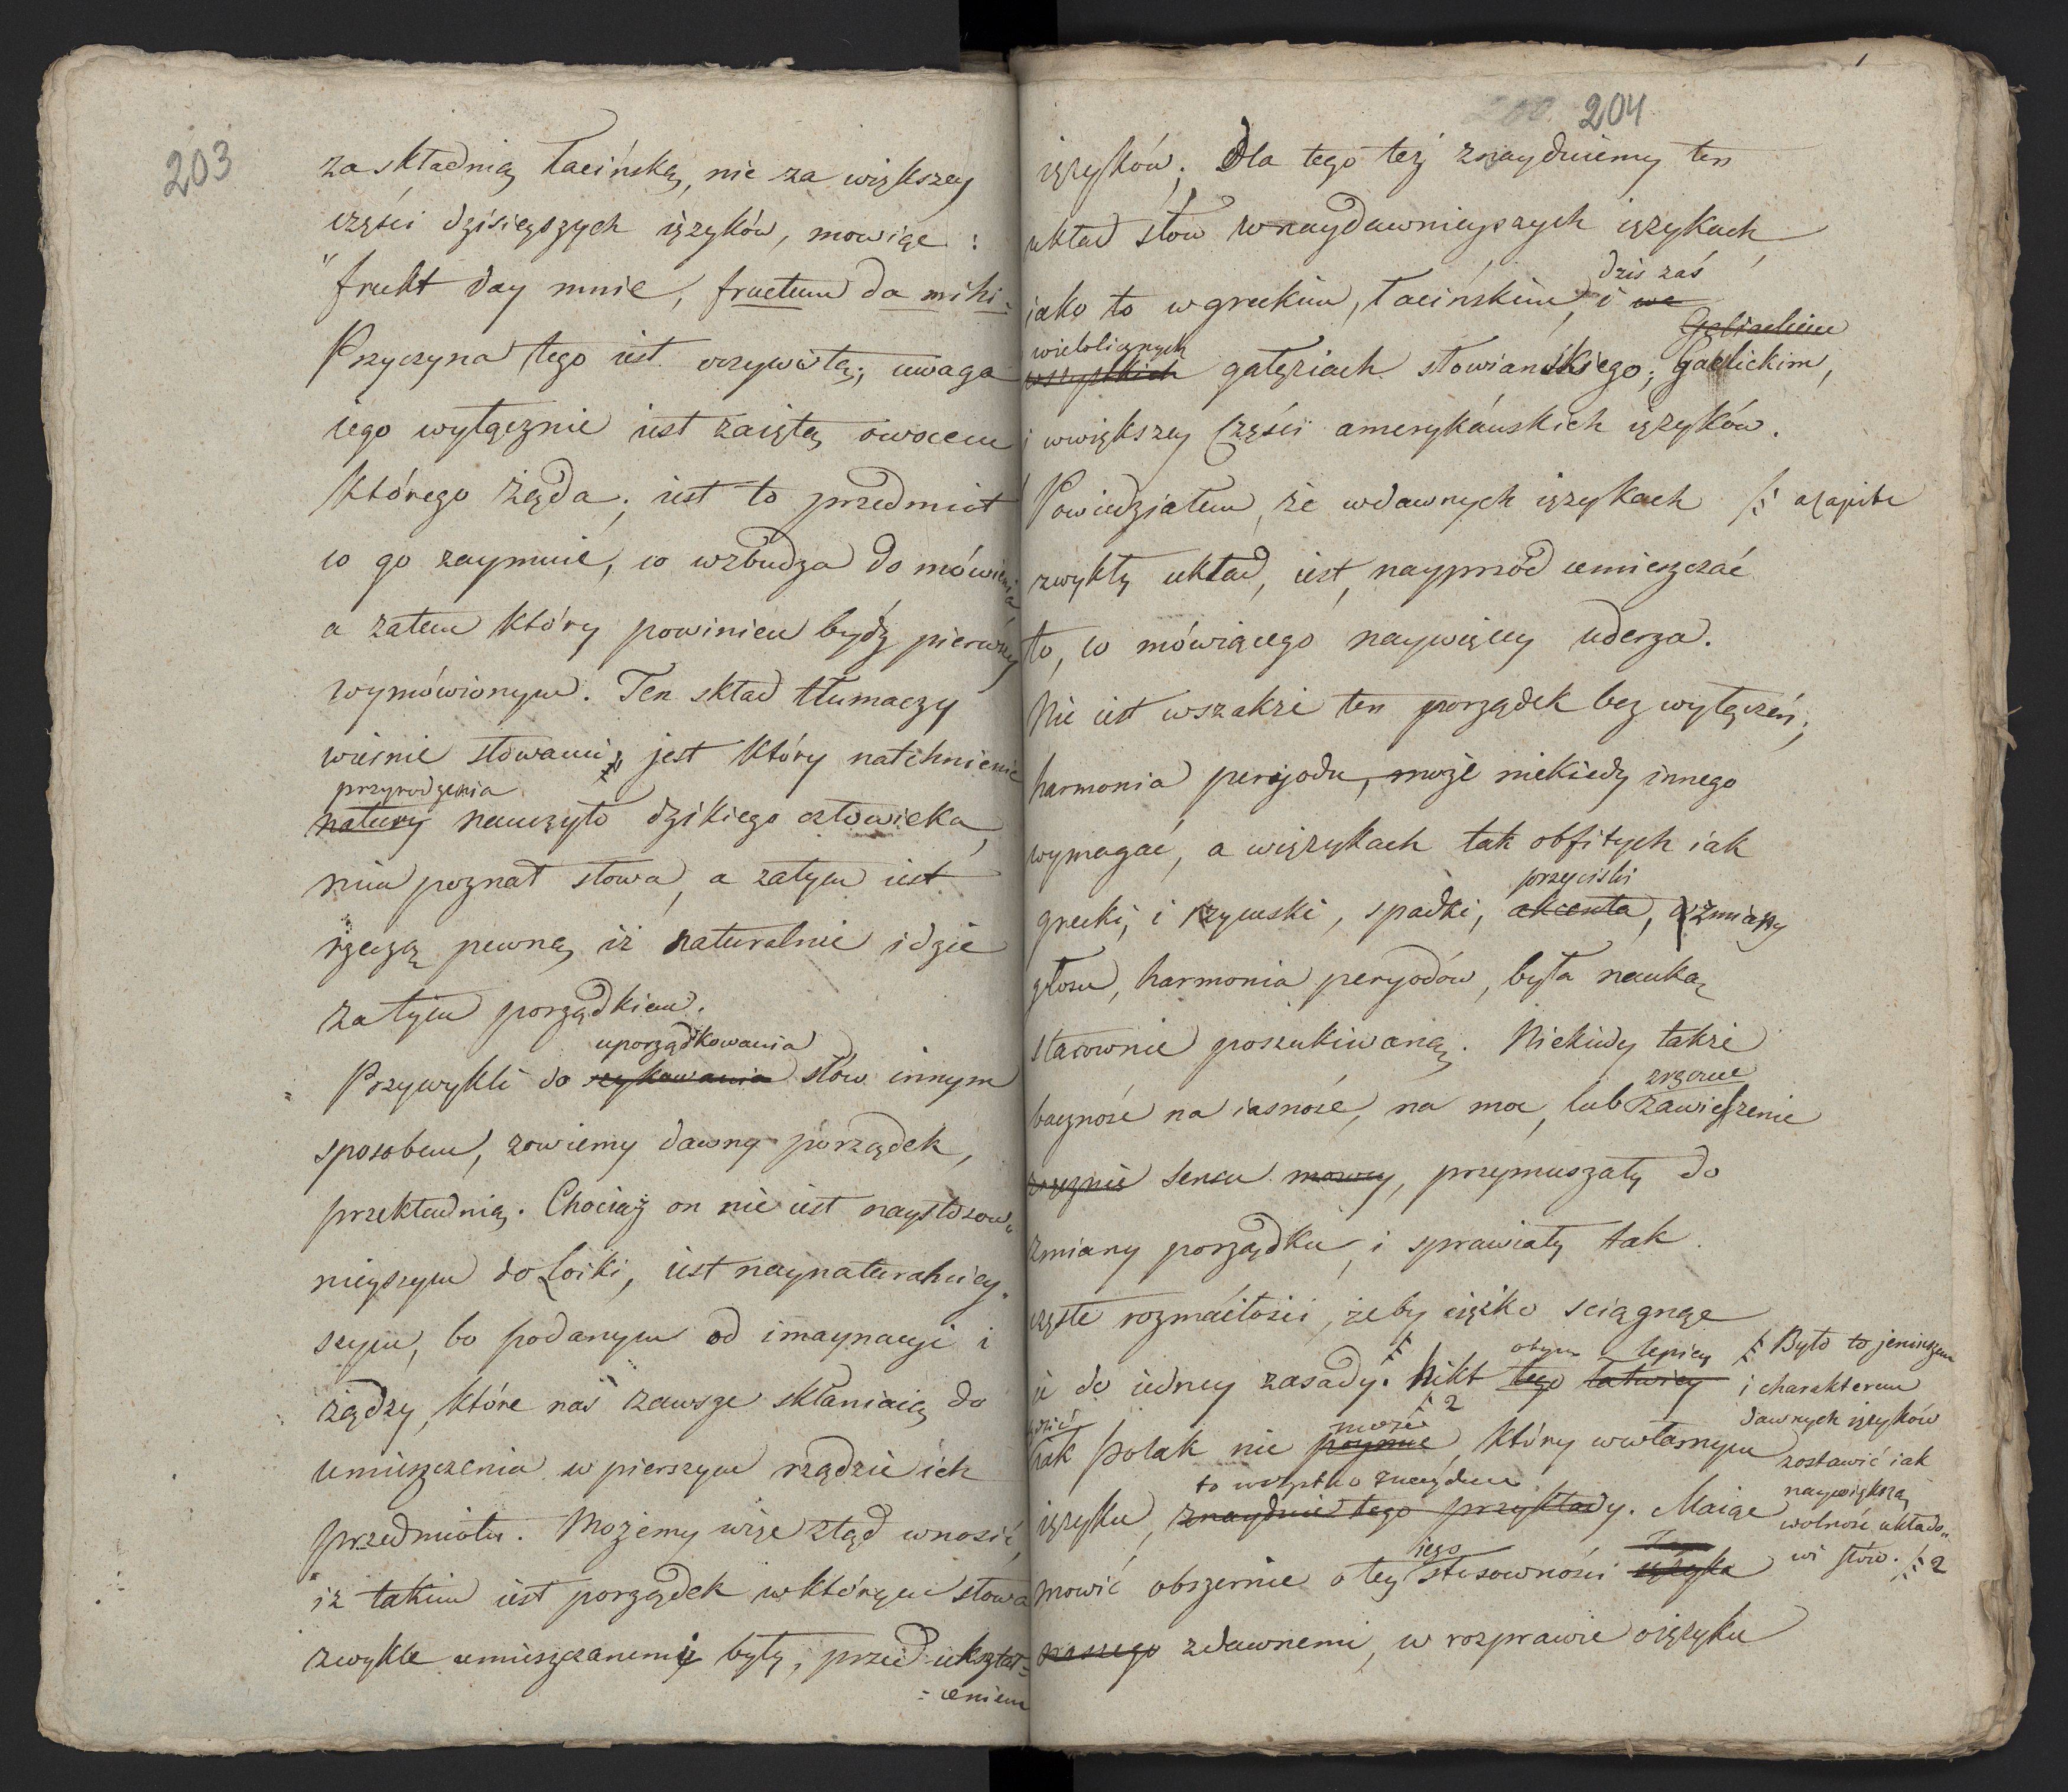 203
za składnią łacińską, nie za większey
części dzisieyszych ięzyków, mowiąc:
"frukt day mnie, fructum da mihi.
Przyczyna tego iest oczywistą; uwaga
iego wyłącznie iest zaiętą owocem
którego żąda; iest to przedmiot
co go zaymuie, co wzbudza do mówienia
a zatem który powinien bydź pierwey
wymówionym. Ten skład tłumaczy
wiernie słowami, jest który natchnienie
przyrodzenia
natury nauczyło dzikiego człowieka,
nim poznał słowa, a zatym iest
rzeczą pewną iż naturalnie idzie
za tym porządkiem.
uporządkowania
Przywykli do szykowania słów innym
sposobem, zowiemy dawny porządek,
przekładnią. Chociaż on nie iest naystosow-
nieyszym do Loiki, iest naynaturalniey-
szym, bo podanym od imaynacyi i
żądzy, które nas zawsze skłaniaią do
umieszczenia w pierszym rządzie ich
przedmiotu. Możemy więc ztąd wnosić,
iż takim iest porządek w którym słowa
zwykle umieszczanemi były, przed ukształ-
=ceniem
204
ięzyków; Dla tego też znayduiemy ten
układ słów w naydawnieyszych ięzykach,
dzis zaś
iako to w greckim, łacińskim, i we
Gaelickim
wielolicznych
wszystkich gałęziach słowiańskiego; gaelickim,
i w większey części amerykańskich ięzyków.
Powiedziałem, że w dawnych ięzykach
zwykły układ, iest, nayprzód umieszczać
to, co mówiącego naywięcey uderza.
Nie iest wszakże ten porządek bez wyłączeń;
harmonia peryjodu, może niekiedy innego
wymagać, a w ięzykach tak obfitych iak
przyciski
grecki, i rzymski, spadki, akcenta, zmiany
głosu, harmonia peryodów, była nauką
starownie poszukiwaną. Niekiedy także
zręczne
baczność na iasność, na moc, lub zawieszenie
zręcznie sensu mowy, przymuszały do
zmiany porządku, i sprawiały tak
częste rozmaitości, żeby ciężko sciągnąć
otym lepiey
ie do iedney zasady. Nikt tego łatwiey
może
iak polak nie poymie, który w własnym
to wszystko znayduie
ięzyku, znayduie tego przykłady. Maiąc
iego
mowić obszernie o tey stosowności ięzyka
naszego z dawnemi, w rozprawie o ięzyku
Było to jeniuszem
i charakterem
dawnych ięzyków
zostawić iak
naywiększą
wolność układo-
wi słów. 2